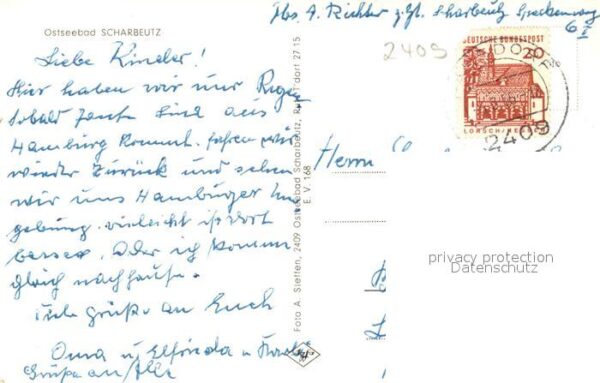 Abs. A. Richter z.Zt. Scharbeutz Speckenweg
6 I
Ostseebad SCHARBEUTZ
2409
DEUTSCHE BUNDESPOST
20
LORSCH/HESSEN
2409
Liebe Kinder!
Hier haben wir nur Regen
sobald Tante Lind aus
Hamburg kommt. fahren wir
wieder zurück und sehen
wir uns Hamburger Um
gebung. vielleicht ist dort
besser. Oder ich komme
gleich nachhause.
Viele Grüße an Euch
Oma u. Elfrieda u
Grüße an Alle
Foto A. Steffen, 2409 Ostseebad Scharbeutz, Ruf Tdorf 27 15
E. V. 168
Herrn
privacy protection
Datenschutz